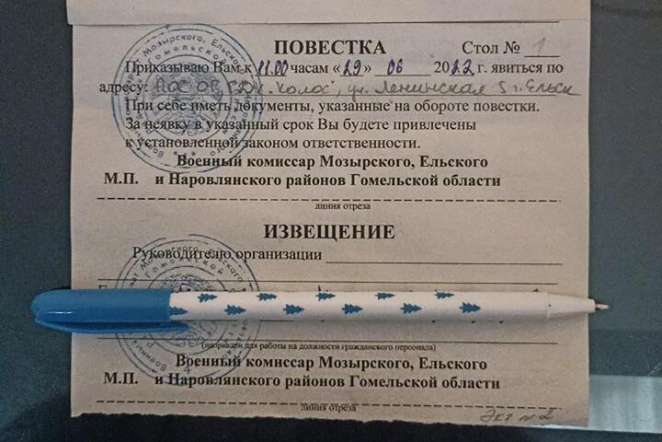 ПОВЕСТКА Стол № 1
Приказываю Вам к 11.00 часам «29» 06 2022 г. явиться по
адресу: "Колос", ул. Ленинская 5 г. Ельск
При себе иметь документы, указанные на обороте повестки.
За неявку в указанный срок Вы будете привлечены
к установленной законом ответственности.
Военный комиссар Мозырского, Ельского
М.П. и Наровлянского районов Гомельской области
линия отреза
ИЗВЕЩЕНИЕ
Руководителю организации
(направлен для работы на должности гражданского персонала)
Военный комиссар Мозырского, Ельского
М.П. и Наровлянского районов Гомельской области
линия отреза
Экз №2